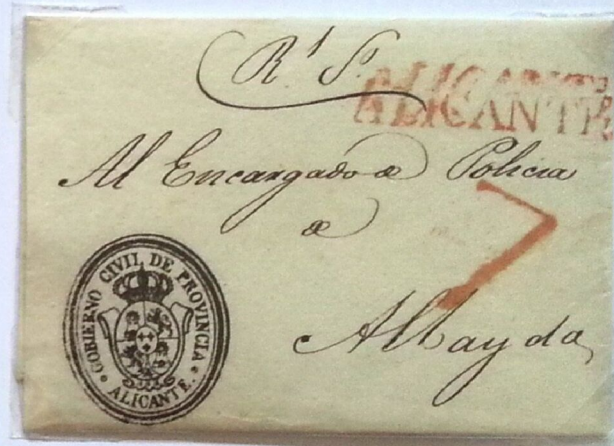 Rl So.
ALICANTE
ALICANTE
Al Encargado de Policia
de
7
Albayda
GOBIERNO CIVIL DE PROVINCIA
ALICANTE.